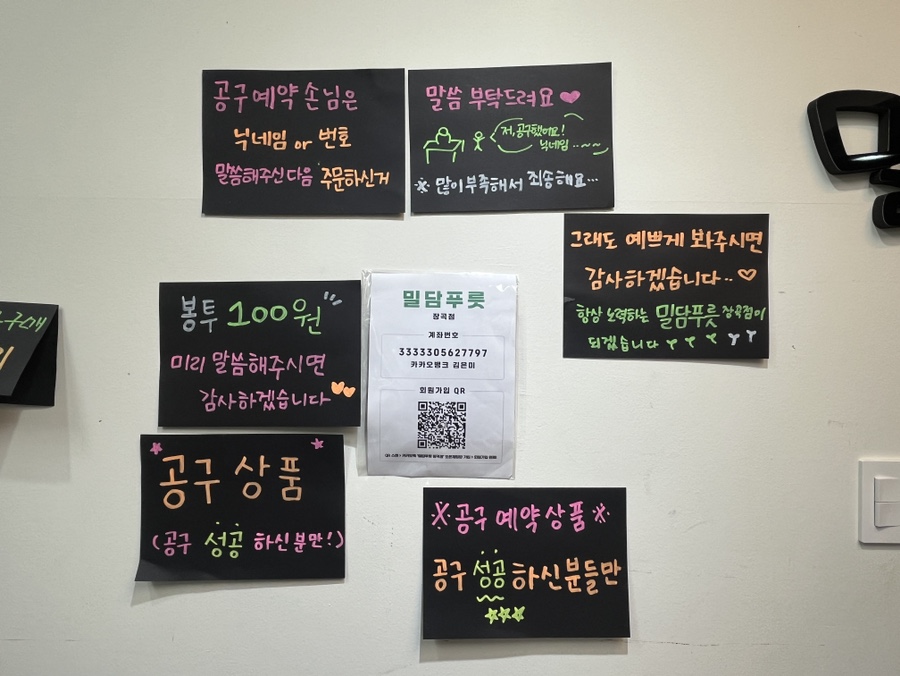 공구예약 손님은
닉네임 or 번호
말씀해주신다음 주문하신거
말씀 부탁드려요
저, 공구했어요!
닉네임..~~
※ 많이 부족해서 죄송해요...
그래도 예쁘게 봐주시면
감사하겠습니다..
항상 노력하는 밀담푸릇 장곡점이
되겠습니다
봉투 100원
미리 말씀해주시면
감사하겠습니다
밀담푸릇
장곡점
계좌번호
3333305627797
카카오뱅크 김은미
회원가입 QR
공구 상품
(공구 성공 하신분만!)
※공구 예약상품※
공구 성공 하신분들만